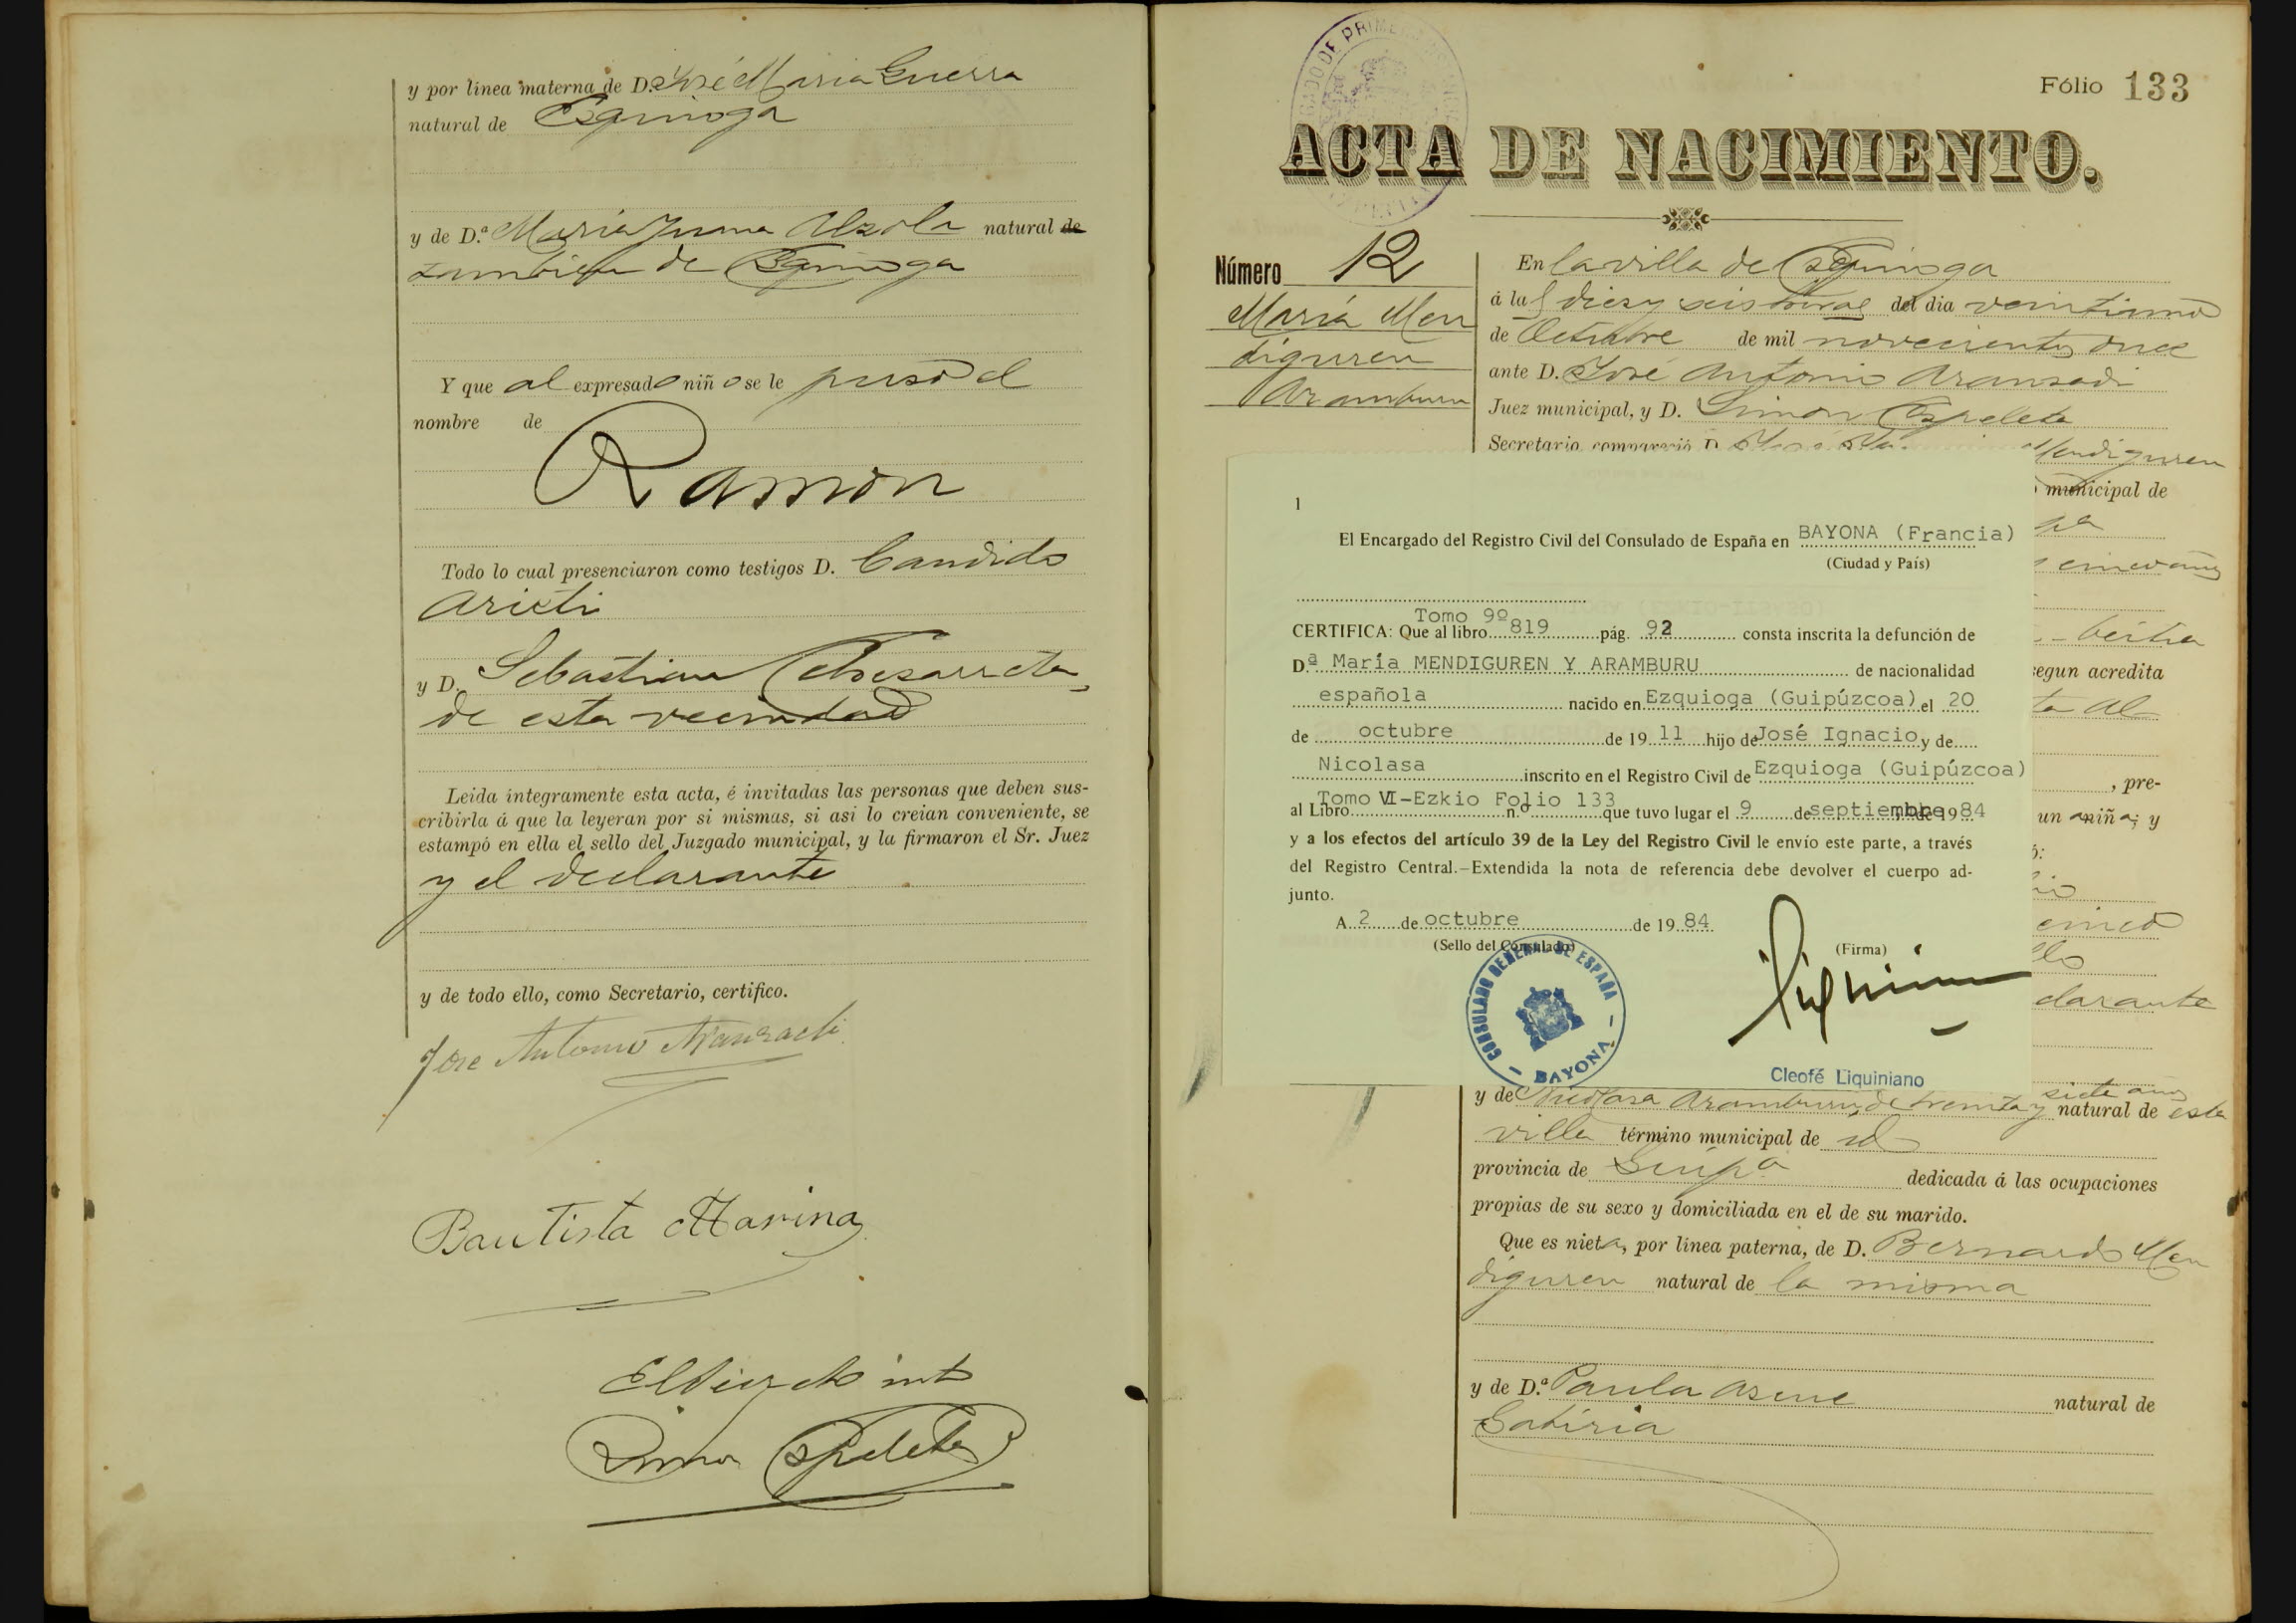 y por línea materna de D. José María Guerra
natural de Ezquioga
y de D.ª María Juana Alzola natural de
tambien de Ezquioga
Y que al expresado niño se le puso el
nombre de
Ramon
Todo lo cual presenciaron como testigos D. Candido
Aristi
y D. Sebastian Echezarreta
de esta vecindad
Leida íntegramente esta acta, é invitadas las personas que deben sus-
cribirla á que la leyeran por si mismas, si asi lo creian conveniente, se
estampó en ella el sello del Juzgado municipal, y la firmaron el Sr. Juez
y el declarante
y de todo ello, como Secretario, certifico.
Jose Antonio Aranzadi
Bautista Marina
Simon Ezpeleta
Fólio 133
ACTA DE NACIMIENTO.
Número 12
María Men
diguren
Aramburu
En la villa de Ezquioga
á las diez y seis horas del dia veintiuno
de Octubre de mil novecientos once
ante D. José Antonio Aranzadi
Juez municipal, y D. Simon Ezpeleta
Secretario, compareció D. José Mendiguren
municipal de
cinco años
segun acredita
, pre-
un niña; y
cinco
clarante
1
El Encargado del Registro Civil del Consulado de España en BAYONA (Francia)
(Ciudad y País)
Tomo 9º
CERTIFICA: Que al libro 819 pág. 92 consta inscrita la defunción de
D.ª María MENDIGUREN Y ARAMBURU de nacionalidad
española nacido en Ezquioga (Guipúzcoa) el 20
de octubre de 19 11 hijo de José Ignacio y de
Nicolasa inscrito en el Registro Civil de Ezquioga (Guipúzcoa)
Tomo VI-Ezkio Folio 133
al Libro n.º que tuvo lugar el 9 de septiembre de 19 84
y a los efectos del artículo 39 de la Ley del Registro Civil le envío este parte, a través
del Registro Central.–Extendida la nota de referencia debe devolver el cuerpo ad-
junto.
A 2 de octubre de 19 84
(Sello del Consulado)
(Firma)
CONSULADO GENERAL DE ESPAÑA
– BAYONA –
Cleofé Liquiniano
y de Nicolasa Aramburu, de treinta y siete años natural de esta
villa término municipal de id
provincia de Guipª dedicada á las ocupaciones
propias de su sexo y domiciliada en el de su marido.
Que es nieta, por línea paterna, de D. Bernardo Men
diguren natural de la misma
y de D.ª Paula natural de